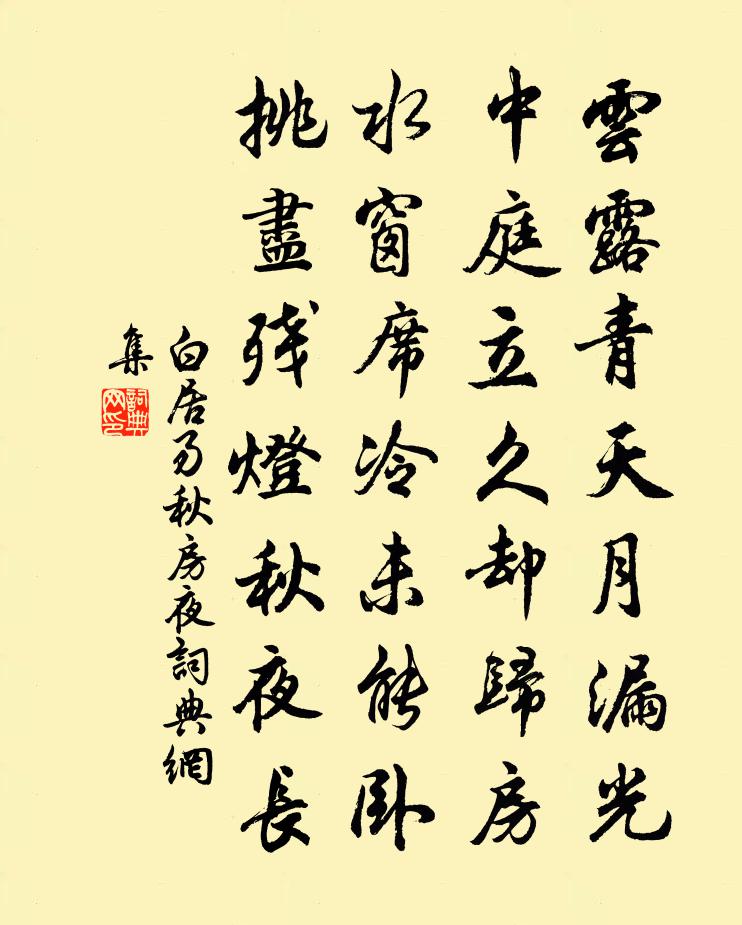 雲露青天月漏光
中庭立久却歸房
水窗席冷未能卧
挑盡残燈秋夜長
白居易秋房夜詞典網
集
詞典網印